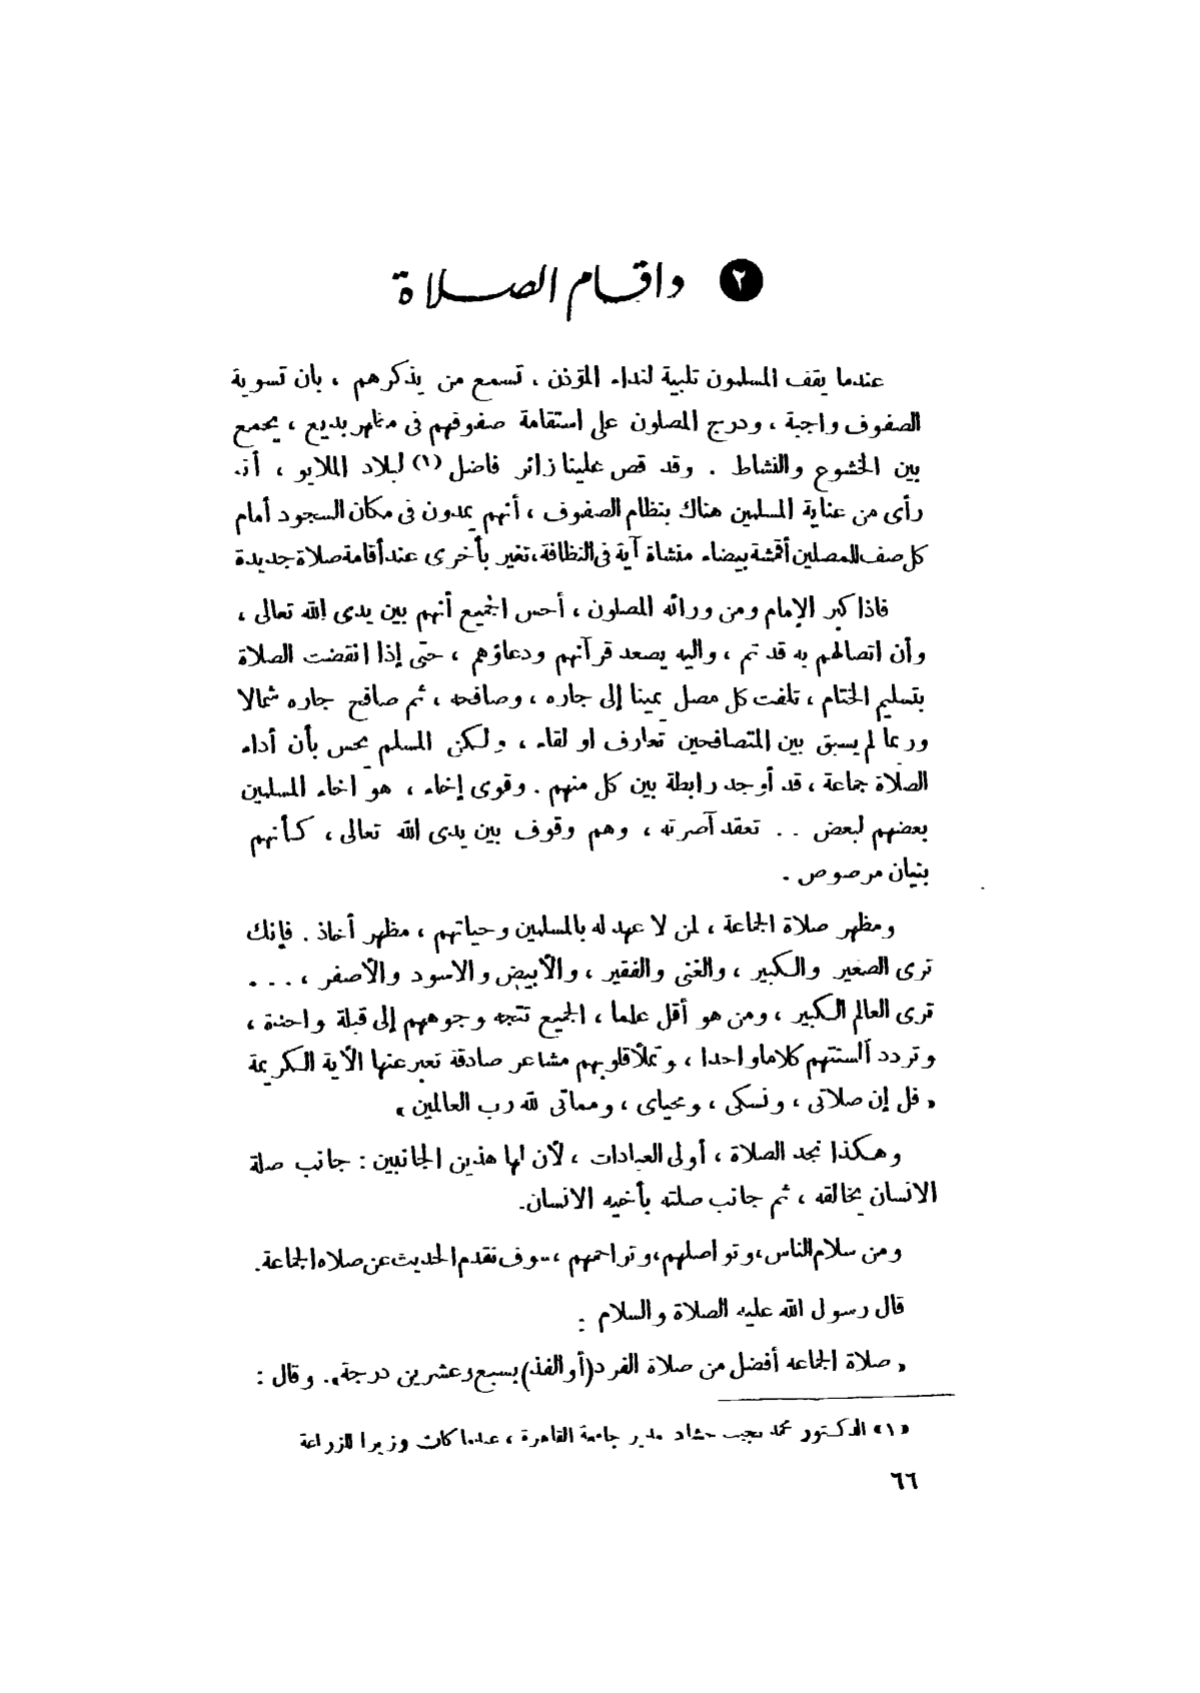 ٢ واقام الصلاة
عندما يقف المسلمون تلبية لنداء المؤذن ، تسمع من يذكرهم ، بان تسوية
الصفوف واجبة ، ودرج المصلون على استقامة صفوفهم فى مظهر بديع ، يجمع
بين الخشوع والنشاط . وقد قص علينا زائر فاضل (١) لبلاد الملايو ، أنه
رأى من عناية المسلمين هناك بنظام الصفوف ، أنهم يمدون فى مكان السجود أمام
كل صف للمصلين أقمشة بيضاء منشاة آية فى النظافة ، تغير بأخرى عند أقامة صلاة جديدة
فاذا كبر الإمام ومن ورائه المصلون ، أحس الجميع أنهم بين يدى الله تعالى ،
وأن اتصالهم به قد تم ، واليه يصعد قرآنهم ودعاؤهم ، حتى إذا انقضت الصلاة
بتسليم الختام ، تلفت كل مصل يمينا إلى جاره ، وصافحه ، ثم صافح جاره شمالا
وربما لم يسبق بين المتصافحين تعارف او لقاء ، ولكن المسلم يحس بأن أداء
الصلاة جماعة ، قد أوجد رابطة بين كل منهم . وقوى إخاء ، هو اخاء المسلمين
بعضهم لبعض . . تعقد آصرته ، وهم وقوف بين يدى الله تعالى ، كأنهم
بنيان مرصوص .
ومظهر صلاة الجماعة ، لمن لا عهد له بالمسلمين وحياتهم ، مظهر أخاذ . فإنك
ترى الصغير والكبير ، والغنى والفقير ، والأبيض والاسود والأصفر ، . . .
ترى العالم الكبير ، ومن هو أقل علما ، الجميع تتجه وجوههم إلى قبلة واحدة ،
وتردد ألسنتهم كلاما واحدا ، وتملأ قلوبهم مشاعر صادقة تعبر عنها الآية الكريمة
« قل إن صلاتى ، ونسكى ، ومحياى ، ومماتى لله رب العالمين »
وهكذا نجد الصلاة ، أولى العبادات ، لأن لها هذين الجانبين : جانب صلة
الانسان بخالقه ، ثم جانب صلته بأخيه الانسان.
ومن سلام الناس ، وتواصلهم ، وتراحمهم ، سوف نقدم الحديث عن صلاة الجماعة .
قال رسول الله عليه الصلاة والسلام :
« صلاة الجماعه أفضل من صلاة الفرد (أو الفذ) بسبع وعشرين درجة » . وقال :
«١» الدكتور محمد نجيب حشاد مدير جامعة القاهرة ، عندما كان وزيرا للزراعة
٦٦